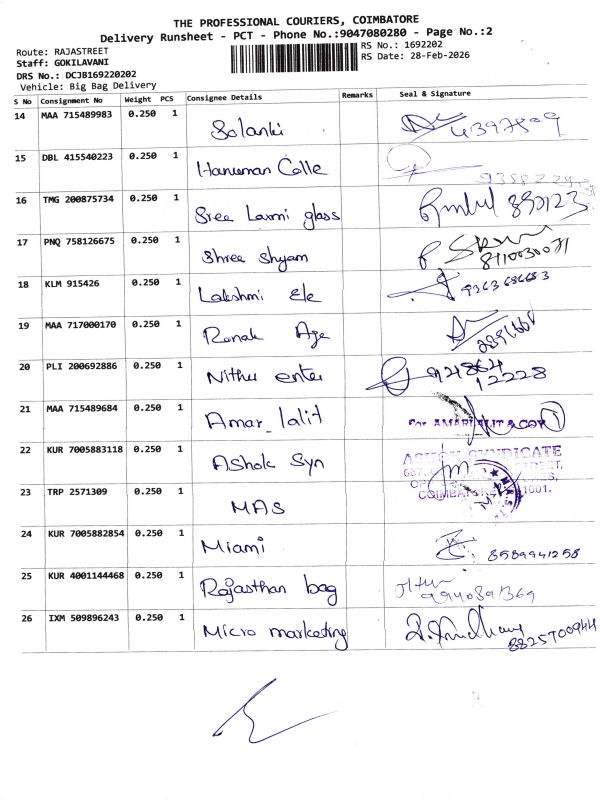 THE PROFESSIONAL COURIERS, COIMBATORE
Delivery Runsheet - PCT - Phone No.:9047080280 - Page No.:2
Route: RAJASTREET
Staff: GOKILAVANI
DRS No.: DCJB169220202
Vehicle: Big Bag Delivery
RS No.: 1692202
RS Date: 28-Feb-2026
S No Consignment No Weight PCS Consignee Details Remarks Seal & Signature
14 MAA 715489983 0.250 1 Solanki
15 DBL 415540223 0.250 1 Hanuman Colle
16 TMG 200875734 0.250 1 Sree Laxmi glass
17 PNQ 758126675 0.250 1 Shree Shyam
18 KLM 915426 0.250 1 Lakshmi Ele 9363686683
19 MAA 717000170 0.250 1 Ronak Age
20 PLI 200692886 0.250 1 Nithu enter
12228
21 MAA 715489684 0.250 1 Amar lalit For AMAR LALIT & CO
22 KUR 7005883118 0.250 1 Ashok Syn ASHOK SYNDICATE
STREET,
COIMBATORE 1001.
23 TRP 2571309 0.250 1 MAS
24 KUR 7005882854 0.250 1 Miami 8589941258
25 KUR 4001144468 0.250 1 Rajasthan bag
9940891369
26 IXM 509896243 0.250 1 Micro marketing
8825700944